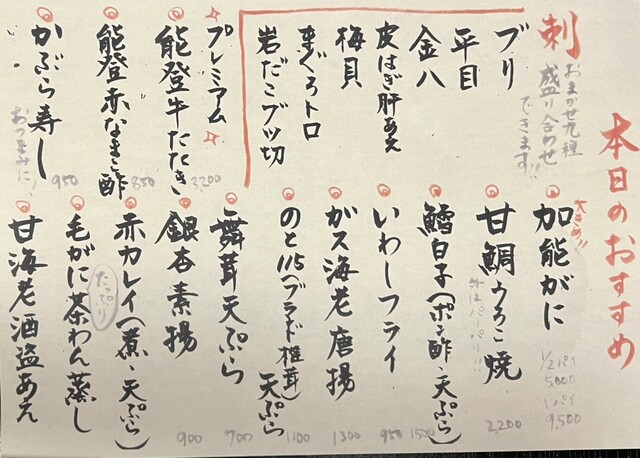 本日のおすすめ
刺
おまかせ九種
盛り合わせ
できます!!
ブリ
平目
金八
皮はぎ肝あえ
梅貝
まぐろトロ
岩だこブツ切
プレミアム
能登牛たたき
3,200
能登赤なまこ酢
850
かぶら寿し
おつまみに!
950
大きめ!!
加能がに
1/2パイ
5,000
1パイ
9,500
甘鯛うろこ焼
外はパリパリ!!
2,200
鱈白子(ポン酢・天ぷら)
1500
いわしフライ
950
ガス海老唐揚
1300
のと115(ブランド椎茸)天ぷら
1100
舞茸天ぷら
700
銀杏素揚
900
赤カレイ(煮・天ぷら)
毛がに茶わん蒸し
たっぷり
甘海老酒盗あえ